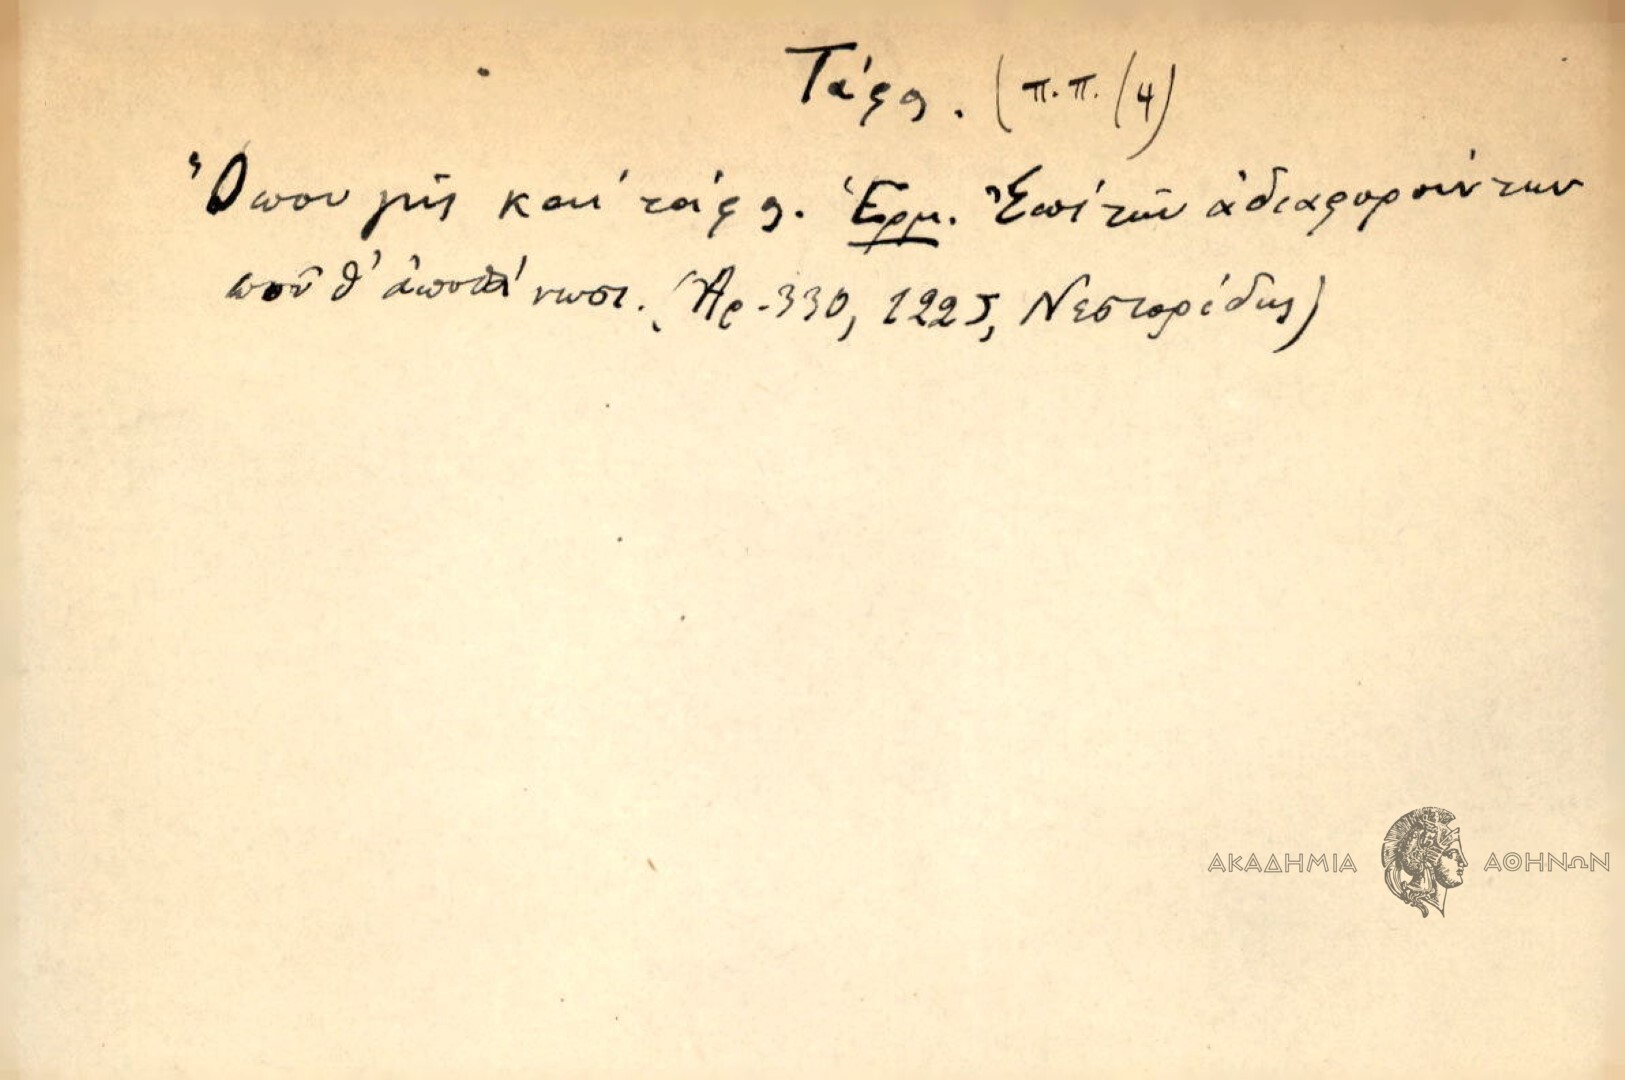 Τάφος. (π.π. (4)
Ὅπου γῆς καὶ τάφος. Ἑρμ. Ἐπὶ τῶν ἀδιαφορούντων
ποῦ θ' ἀποθάνωσι. (Ἀρ. 330, 1225, Νεστορίδης)
ΑΚΑΔΗΜΙΑ ΑΘΗΝΩΝ